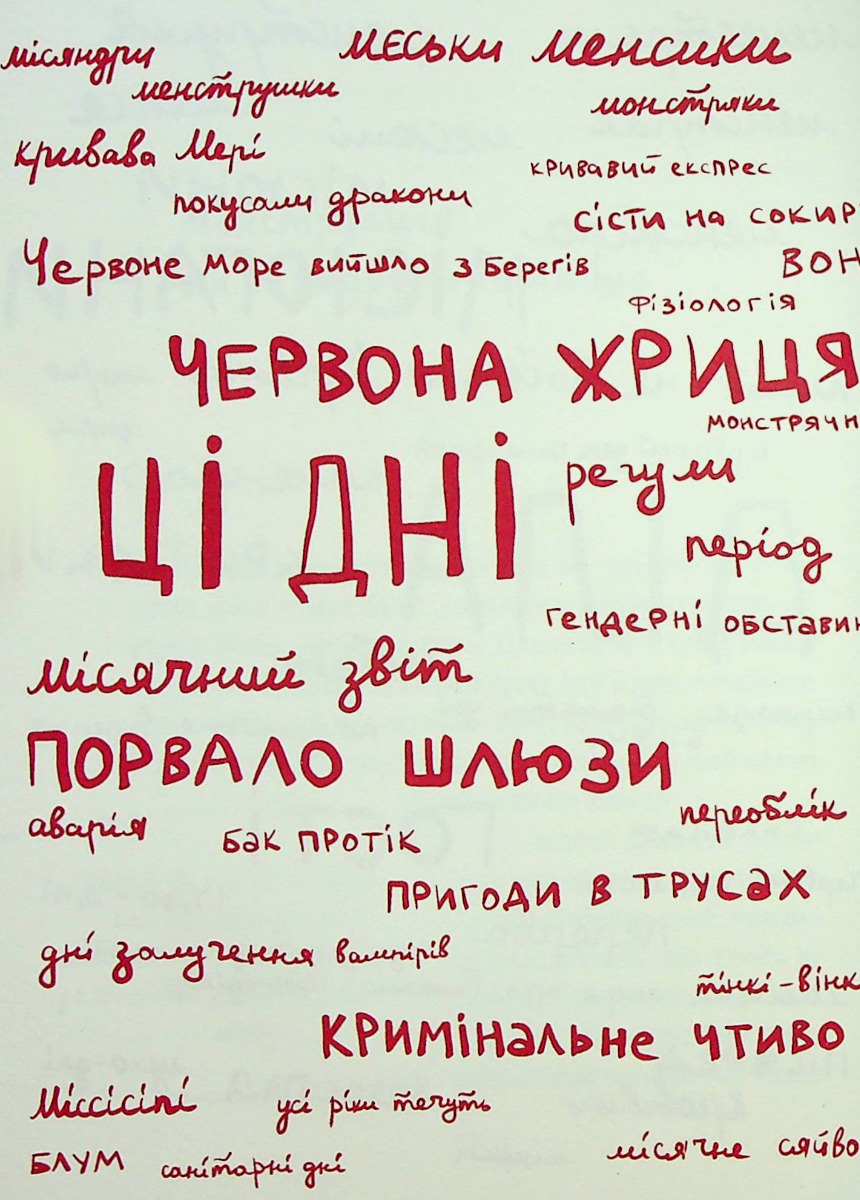 місяндри МЄСЬКИ менсики
менструшки монстряки
кривава Мері кривавий експрес
покусали дракони сісти на сокир
Червоне море вийшло з берегів ВОН
фізіологія
ЧЕРВОНА ЖРИЦЯ
монстрячн
ЦІ ДНІ регули
період
гендерні обставин
місячний звіт
ПОРВАЛО ШЛЮЗИ
аварія бак протік переоблік
ПРИГОДИ В ТРУСАХ
дні залучення вампірів
тінкі-вінк
КРИМІНАЛЬНЕ ЧТИВО
Міссісіпі усі ріки течуть
БЛУМ санітарні дні місячне сяйво